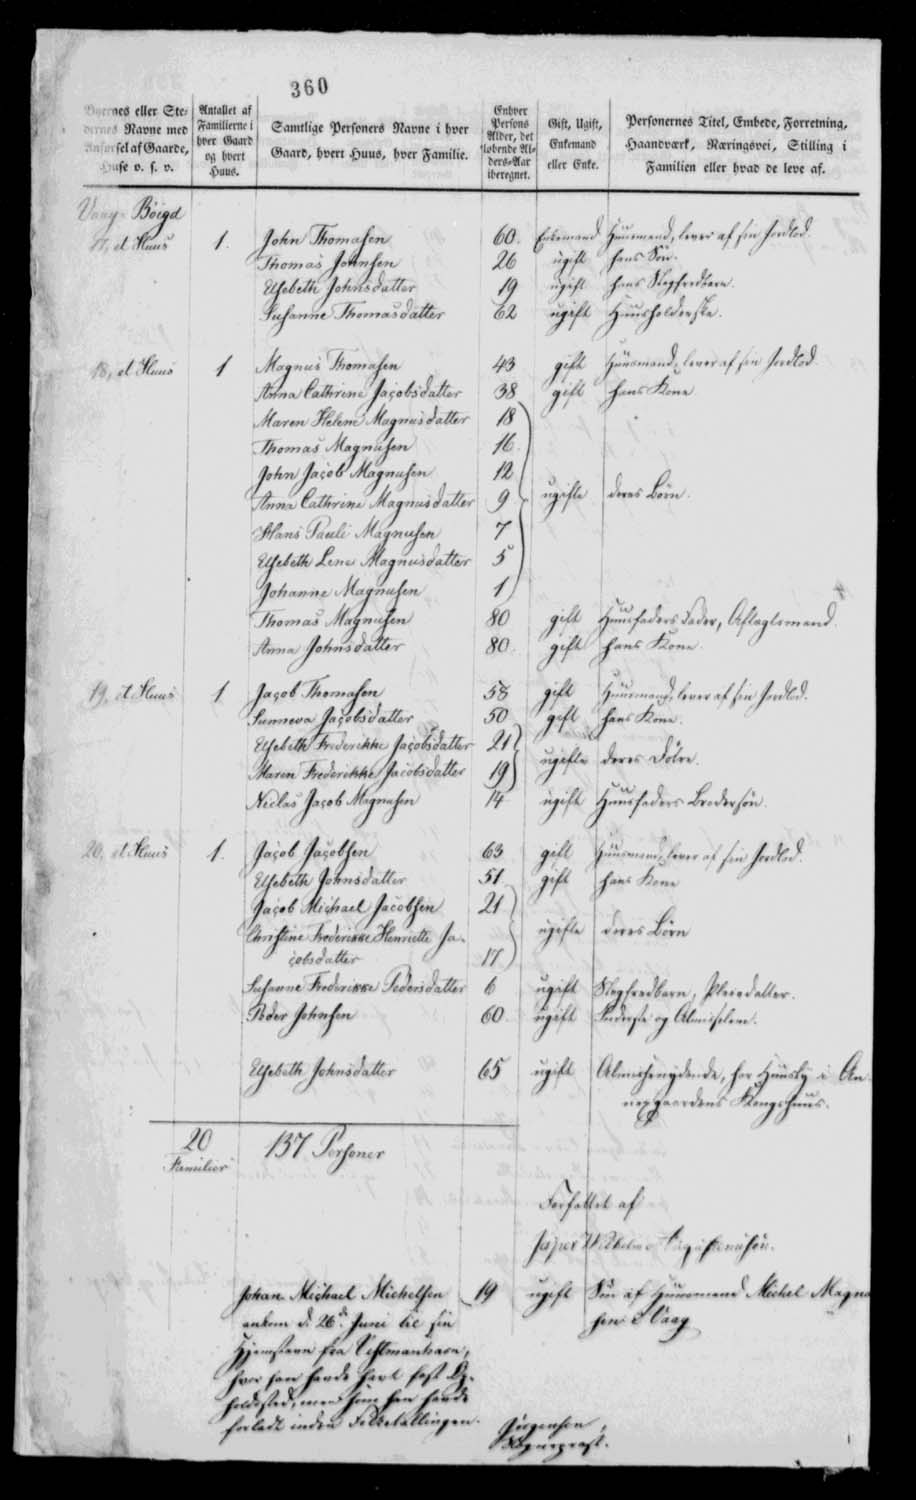 360
Byernes eller Ste-
dernes Navne med
Anførsel af Gaarde,
Huse o. s. v.
Antallet af
Familierne i
hver Gaard
og hvert
Huus.
Samtlige Personers Navne i hver
Gaard, hvert Huus, hver Familie.
Enhver
Persons
Alder, det
løbende Al-
ders-Aar
iberegnet.
Gift, Ugift,
Enkemand
eller Enke.
Personernes Titel, Embede, Forretning,
Haandværk, Næringsvei, Stilling i
Familien eller hvad de leve af.
Vaag Böigd
17, et Huus 1. John Thomasen 60. Enkemand Huusmand, lever af sin Jordlod.
Thomas Johnsen 26 ugift hans Søn.
Elsebeth Johnsdatter 19 ugift hans Slegfredbarn.
Susanne Thomasdatter 62 ugift Huusholderske.
18, et Huus 1 Magnus Thomasen 43 gift Huusmand, lever af sin Jordlod
Anna Cathrine Jacobsdatter 38 gift hans Kone
Maren Helene Magnusdatter 18
Thomas Magnusen 16
John Jacob Magnusen 12
Anna Cathrine Magnusdatter 9 ugifte deres Børn.
Hans Pauli Magnusen 7
Elsebeth Lene Magnusdatter 5
Johanne Magnusen 1
Thomas Magnusen 80 gift Huusfaders Fader, Aftægtsmand.
Anna Johnsdatter 80. gift hans Kone
19, et Huus 1 Jacob Thomasen 58 gift Huusmand, lever af sin Jordlod.
Sunneva Jacobsdatter 50 gift hans Kone.
Elsebeth Frederikke Jacobsdatter 21
Maren Frederikke Jacobsdatter 19 ugifte deres Døtre.
Niclas Jacob Magnusen 14 ugift Huusfaders Brodersøn.
20, et Huus 1. Jacob Jacobsen 63 gift Huusmand, lever af sin Jordlod.
Elsebeth Johnsdatter 51 gift hans Kone
Jacob Michael Jacobsen 21
Christine Frederikke Henriette Ja- ugifte deres Børn
cobsdatter 17
Susanne Frederikke Pedersdatter 6 ugift Slegfredbarn, Pleiedatter.
Peder Johnsen 60. ugift Inderste og Almisselem.
Elsebeth Johnsdatter 65 ugift Almissenydende, har Huusly i An-
nexgaardens Kongshuus.
20
Familier
137 Personer
Forfattet af
Jesper Wilhelm
Johan Michael Michelsen 19 ugift Søn af Huusmand Michel Magnu
sen i Vaag
ankom d. 26de Juni til sin
Hjemstavn fra Vestmanhavn,
hvor han havde havt fast Op-
holdssted, men som han havde
forladt inden Folketællingen.
Jørgensen,
Sognepræst.